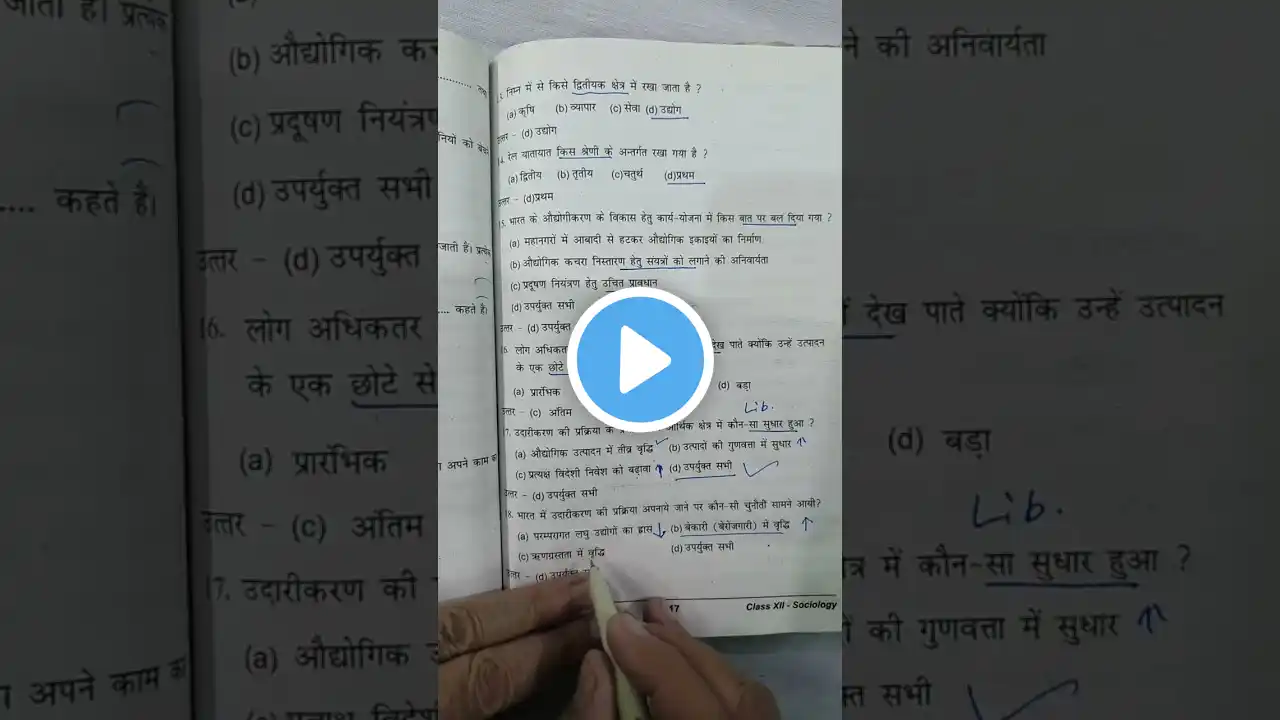 ३. निम्न में से किसे द्वितीयक क्षेत्र में रखा जाता है ?
(a) कृषि (b) व्यापार (c) सेवा (d) उद्योग
उत्तर - (d) उद्योग
4. रेल यातायात किस श्रेणी के अन्तर्गत रखा गया है ?
(a) द्वितीय (b) तृतीय (c)चतुर्थ (d)प्रथम
उत्तर - (d)प्रथम
5. भारत के औद्योगीकरण के विकास हेतु कार्य-योजना में किस बात पर बल दिया गया ?
(a) महानगरों में आबादी से हटकर औद्योगिक इकाइयों का निर्माण
(b) औद्योगिक कचरा निस्तारण हेतु संयत्रों को लगाने की अनिवार्यता
(c) प्रदूषण नियंत्रण हेतु उचित प्रावधान
(d) उपर्युक्त सभी
उत्तर - (d) उपर्युक्त
6. लोग अधिकतर देख पाते क्योंकि उन्हें उत्पादन
के एक छोटे
(a) प्रारंभिक (d) बड़ा
उत्तर - (c) अंतिम Lib.
7. उदारीकरण की प्रक्रिया के आर्थिक क्षेत्र में कौन-सा सुधार हुआ ?
(a) औद्योगिक उत्पादन में तीव्र वृद्धि (b) उत्पादों की गुणवत्ता में सुधार
(c) प्रत्यक्ष विदेशी निवेश को बढ़ावा (d) उपर्युक्त सभी
उत्तर - (d) उपर्युक्त सभी
8. भारत में उदारीकरण की प्रक्रिया अपनाये जाने पर कौन-सी चुनौती सामने आयी?
(a) परम्परागत लघु उद्योगों का ह्रास (b) बेकारी (बेरोजगारी) में वृद्धि
(c) ऋणग्रस्तता में वृद्धि (d) उपर्युक्त सभी
उत्तर - (d) उपर्युक्त
17 Class XII - Sociology